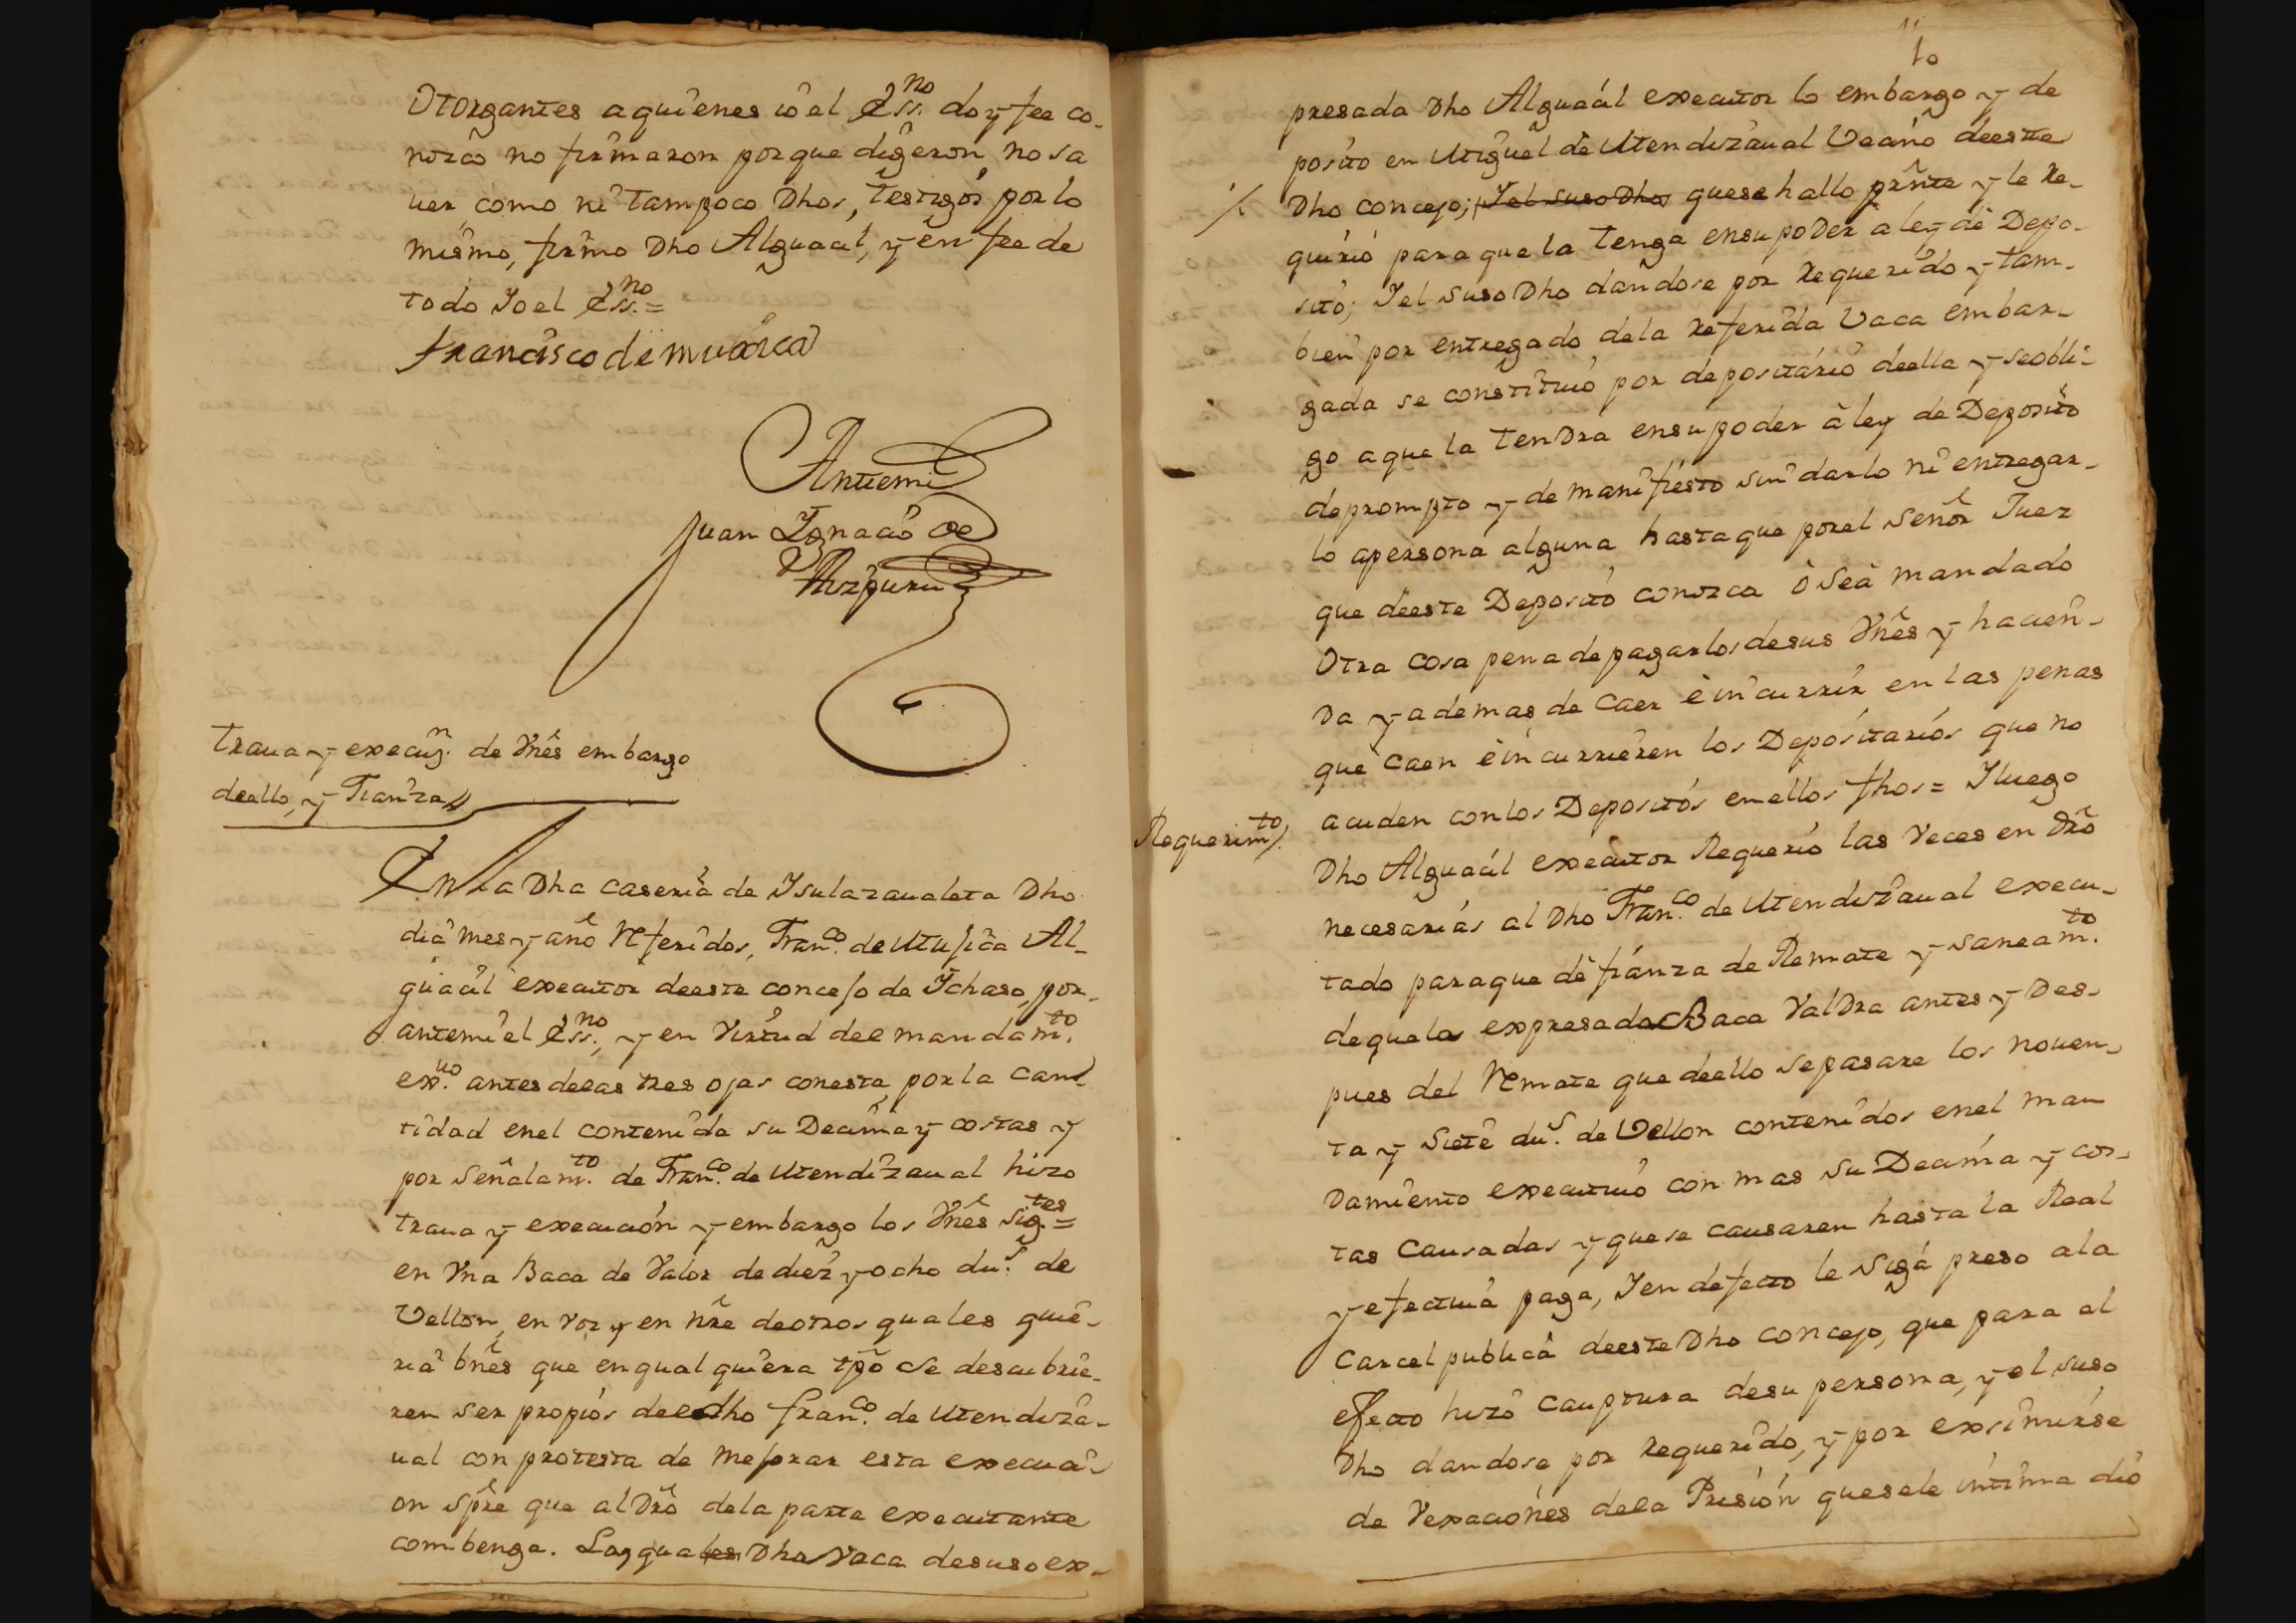 Otorgantes a quienes io el Ess.no doy fee co-
nozco no firmaron porque digeron, no sa
uer, como ni tampoco Dhos, testigos por lo
mismo, firmo Dho Alguacil, y en fee de
todo Yo el Ess.no =
Francisco de muxica
Antemi
Juan Ignacio de
Aizpuru
traua y execuz.n de Vnes embargo
deello, y Fianza
En la Dha caseria de Ysulazaualeta Dho
dia mes y año Referidos, Fran.co de Mujica Al-
guacil executor deeste concejo de Ichaso, por-
antemi el Ess.no, y en Virtud del mandam.to
ex.uo antes delas tres ojas conesta, por la can-
tidad enel contenida su Decima y costas y
por Señalam.to de Fran.co de Mendizaual hizo
traua y execucion y embargo los Vnes sig.tes =
en Vna Baca de Valor de diez y ocho du.s de
Vellon, en voz y en nre de otros quales quie-
ria bnes que en qual quiera tpo se descubrie-
ren ser propios del dho fran.co de Mendiza-
ual con protesta de mejorar esta execuci-
on spre que al Dro dela parte executante
combenga. Laqual Dha Vaca desuso ex-
10
presada Dho Alguacil executor lo embargo y de
posito en Miguel de Mendizaual Vecino deeste
Dho concejo; Yel suso Dho que se hallo prnte y le Re-
quirio para que la tenga ensu poder a ley de Depo-
sito; Yel suso Dho dandose por Requerido y tam-
bien por entregado dela Referida Vaca embar-
gada se constituio por depositario deella y seobli-
go a que la tendra ensu poder à ley de Deposito
de prompto y de manifiesto sin darlo ni entregar-
lo apersona alguna hasta que porel Señor Juez
que deeste Deposito conozca ò Seà mandado
Otra cosa pena de pagarlos desus Vnes y hacien-
Da y ademas de Caer è incurrir en las penas
que caen è incurrieren los Depositarios que no
acuden conlos Depositos enellos fhos = Yluego
Requerim.to
Dho Alguacil executor Requerio las Veces en Dro
necesarias al Dho Fran.co de Mendizaual execu-
tado paraque dè fianza de Remate y saneam.to
de quela expresada Baca Valdra antes y Des-
pues del Remate que deello se pasare los nouen-
ta y Siete du.s de Vellon contenidos enel man
Damiento executiuo con mas su Decima y cos-
tas Causadas y quese causaren hasta la Real
y efectiua paga, Y en defecto le Siga preso ala
Carcel publica deeste Dho concejo, que para el
efecto hizo Cauptura desu persona, y el suso
Dho dandose por Requerido, y por exsimirse
de Vexaciones dela Prision quesele intima dio